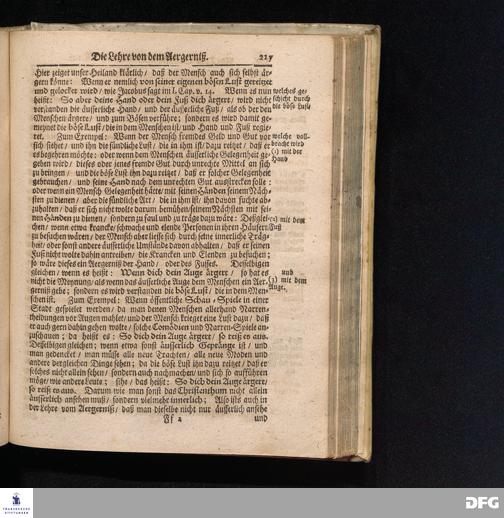 Die Lehre von dem Aergerniß.
Hier zeiget unser Heiland klärlich/ daß der Mensch auch sich selbst är-
gern könne: Wenn er nemlich von seiner eigenen bösen Lust gereitzet
und gelocket wird/ wie Jacobus sagt im I. Cap. v. 14. Wenn es nun
heißt: So aber deine Hand oder dein Fuß dich ärgert/ wird nicht
verstanden die äusserliche Hand/ und der äusserliche Fuß/ als ob der den
Menschen ärgere/ und zum Bösen verführe; sondern es wird damit ge-
meynet die böse Lust/ die in dem Menschen ist/ und Hand und Fuß regie-
ret. Zum Exempel: Wann der Mensch frembdes Geld und Gut vor
sich siehet/ und ihn die sündliche Lust/ die in ihm ist/ dazu reitzet/ daß er
es begehren möchte: oder wenn dem Menschen äusserliche Gelegenheit ge-
geben wird/ dieses oder jenes fremde Gut durch unrechte Mittel an sich
zu bringen/ und die böse Lust ihn dazu reitzet/ daß er solcher Gelegenheit
gebrauchen/ und seine Hand nach dem unrechten Gut ausstrecken solle:
oder wenn ein Mensch Gelegenheit hätte mit seinen Händen seinem Näch-
sten zu dienen/ aber die sündliche Art/ die in ihm ist/ ihn davon suchte ab-
zuhalten/ daß er sich nicht wolte darum bemühen/ seinem Nächsten mit sei-
nen Händen zu dienen/ sondern zu faul und zu träge dazu wäre: Desglei-
chen/ wenn etwa Krancke/ schwache und elende Personen in ihren Häusern
zu besuchen wären/ der Mensch aber liesse sich durch seine innerliche Träg-
heit/ oder sonst andere äusserliche Umstände davon abhalten/ daß er seinen
Fuß nicht wolte dahin antreiben/ die Krancken und Elenden zu besuchen;
so wäre dieses ein Aergerniß der Hand/ oder des Fusses. Desselbigen
gleichen/ wenn es heißt: Wenn dich dein Auge ärgert/ so hat es
nicht die Meynung/ als wenn das äusserliche Auge dem Menschen ein Aer-
gerniß gebe; sondern es wird verstanden die böse Lust/ die in dem Men-
schen ist. Zum Exempel: Wann öffentliche Schau-Spiele in einer
Stadt gespielet werden/ da man denen Menschen allerhand Narren-
theidungen vor Augen mahlet/ und der Mensch krieget eine Lust dazu/ daß
er auch gern dahin gehen wolte/ solche Comödien und Narren-Spiele an-
zuschauen; da heißt es: So dich dein Auge ärgert/ so reiß es aus.
Desselbigen gleichen; wenn etwa sonst äusserlich Gepränge ist/ und
man gedencket/ man müsse alle neue Trachten/ alle neue Moden und
andere dergleichen Dinge sehen; da die böse Lust ihn dazu reitzet/ daß er
solches nicht allein sehen/ sondern auch nachmachen/ und sich so aufführen
möge/ wie andere Leute; sihe/ das heißt: So dich dein Auge ärgert/
so reiß es aus. Darum wie man sonst das Christenthum nicht allein
äusserlich ansehen muß/ sondern vielmehr innerlich; Also ists auch in
der Lehre vom Aergerniß/ daß man dieselbe nicht nur äusserlich ansehe
Ff 2
und
welches ge-
schieht durch
die böse Lust/
welche voll-
bracht wird
(1) mit der
Hand
(2) mit dem
Fuß
und
(3) mit dem
Auge.